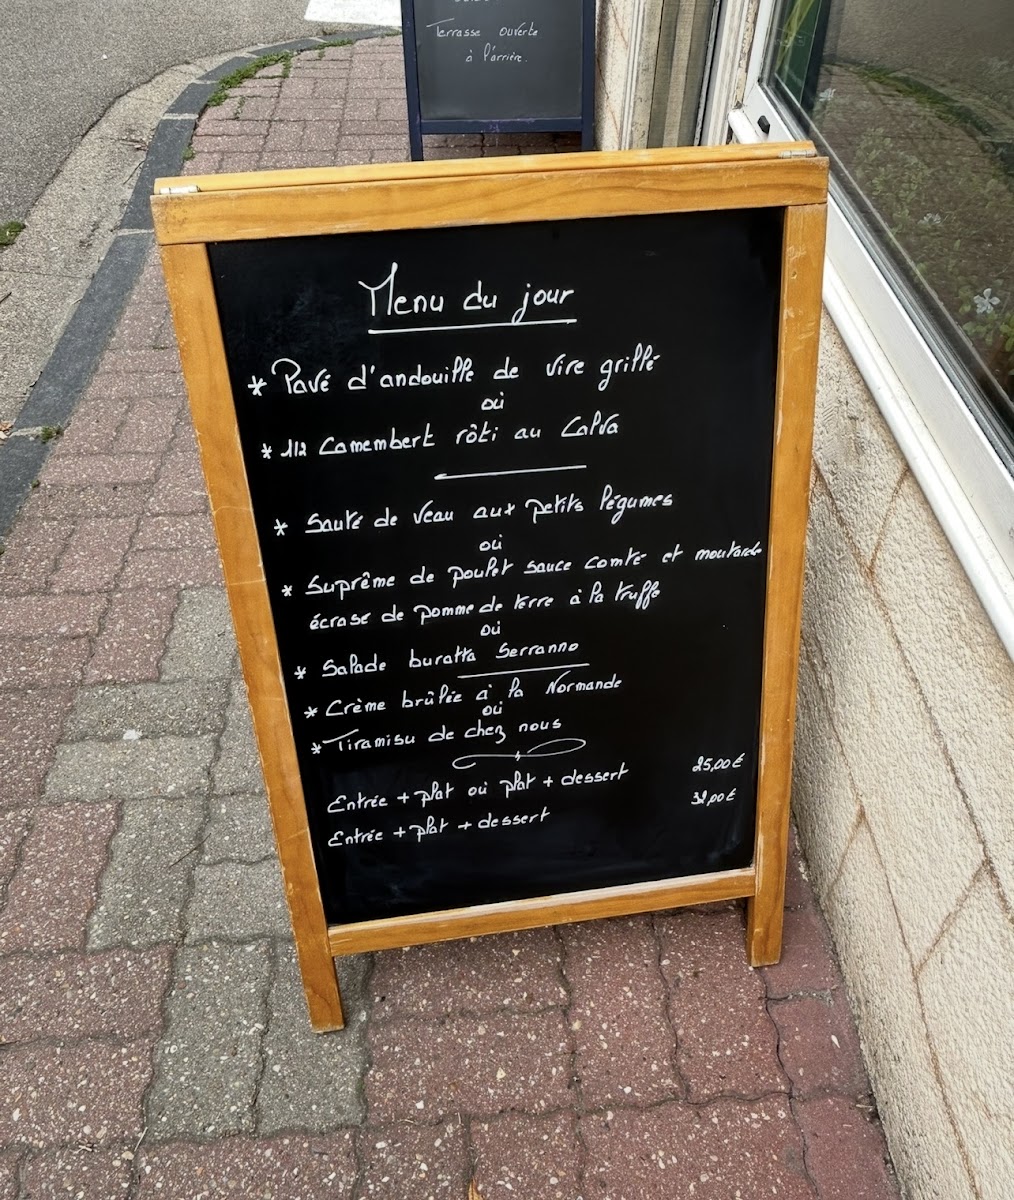 Terrasse ouverte
à l'arrière.
Menu du jour
* Pavé d'andouille de vire grillé
où
* 1/2 Camembert rôti au Calva
* Sauté de veau aux petits légumes
où
* Suprême de poulet sauce comté et moutarde
écrasé de pomme de terre à la truffe
où
* Salade buratta Serranno
* Crème brûlée à la Normande
où
* Tiramisu de chez nous
Entrée + plat où plat + dessert 25,00 €
Entrée + plat + dessert 32,00 €